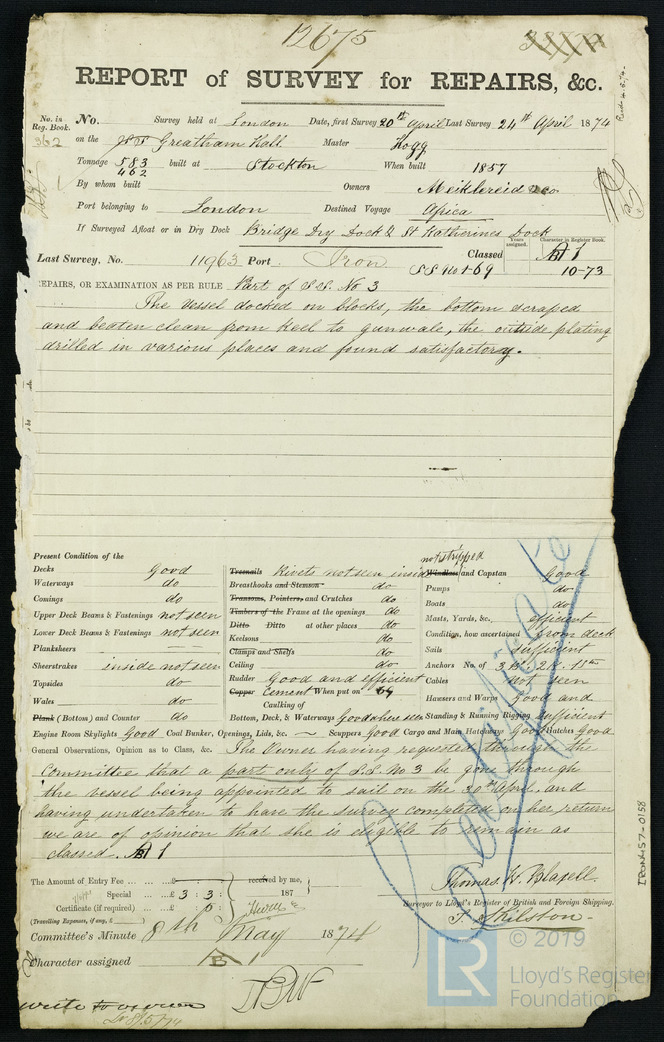 12675
REPORT of SURVEY for REPAIRS, &c.
No. in Reg. Book. 362
No. Survey held at London Date, first Survey 20th April Last Survey 24th April 1874
on the Greatham Hall Master Hogg
Tonnage 583 built at Stockton When built 1857
462
By whom built Owners Meiklereid & Co
Port belonging to London Destined Voyage Africa
If Surveyed Afloat or in Dry Dock Bridge Dry Dock & St Katherines Dock
Last Survey, No. 11963 Port Iron Classed A 1
Years assigned. Character in Register Book.
SS No 1-69 10-73
REPAIRS, OR EXAMINATION AS PER RULE Part of S.S. No 3
The vessel docked on blocks, the bottom scraped
and beaten clean from keel to gunwale, the outside plating
drilled in various places and found satisfactory.
Present Condition of the
Decks Good
Waterways do
Comings do
Upper Deck Beams & Fastenings not seen
Lower Deck Beams & Fastenings not seen
Planksheers
Sheerstrakes inside not seen
Topsides do
Wales do
Plank (Bottom) and Counter do
Treenails Rivets not seen inside
Breasthooks and Stemson do
Transoms, Pointers, and Crutches do
Timbers of the Frame at the openings do
Ditto Ditto at other places do
Keelsons do
Clamps and Shelfs do
Ceiling do
Rudder Good and efficient
Copper Cement When put on 69
Caulking of
Bottom, Deck, & Waterways Good where seen
not stripped
Windlass and Capstan Good
Pumps do
Boats do
Masts, Yards, &c., efficient
Condition, how ascertained from deck
Sails sufficient
Anchors No. of 3 B. 2 K.
Cables not seen
Hawsers and Warps Good and
Standing & Running Rigging sufficient
Engine Room Skylights Good Coal Bunker, Openings, Lids, &c. Scuppers Good Cargo and Main Hatchways Good Hatches Good
General Observations, Opinion as to Class, &c. The Owner having requested through the
Committee that a part only of S.S. No 3 be gone through
the vessel being appointed to sail on the 30th April, and
having undertaken to have the survey completed on her return
we are of opinion that she is eligible to remain as
classed A 1
The Amount of Entry Fee £ : : received by me,
Special £ 3 : 3 : 187
Certificate (if required) £ : 5 :
(Travelling Expenses, if any, £ )
Thomas W. Blaxell.
Surveyor to Lloyd's Register of British and Foreign Shipping.
Committee's Minute 8th May 1874
Character assigned A 1
write to owner
8/5/74
IRON457-0158
© 2019
LR
Lloyd's Register
Foundation